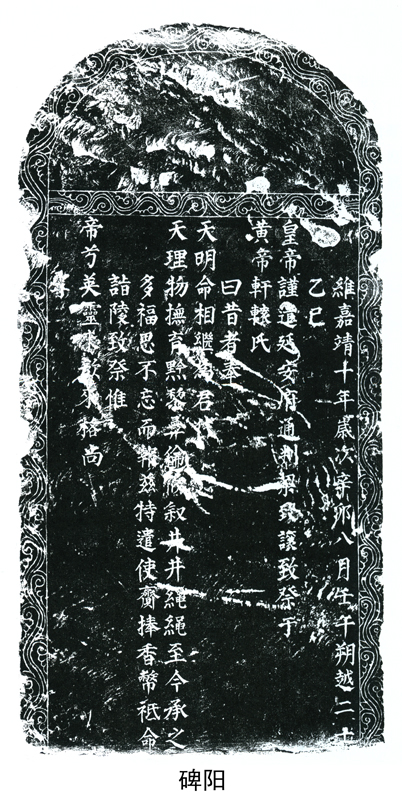 維嘉靖十年歲次辛卯八月壬午朔越二十
乙巳
皇帝謹遣延安府通判讓致祭于
黃帝軒轅氏
曰昔者
天明命相繼為君
天理物撫育黔黎彝倫攸敘井井繩繩至今承之
多福思不忘而報茲特遣使齎捧香幣祗命
詣陵致祭惟
帝兮英靈來歆來格尚
碑阳